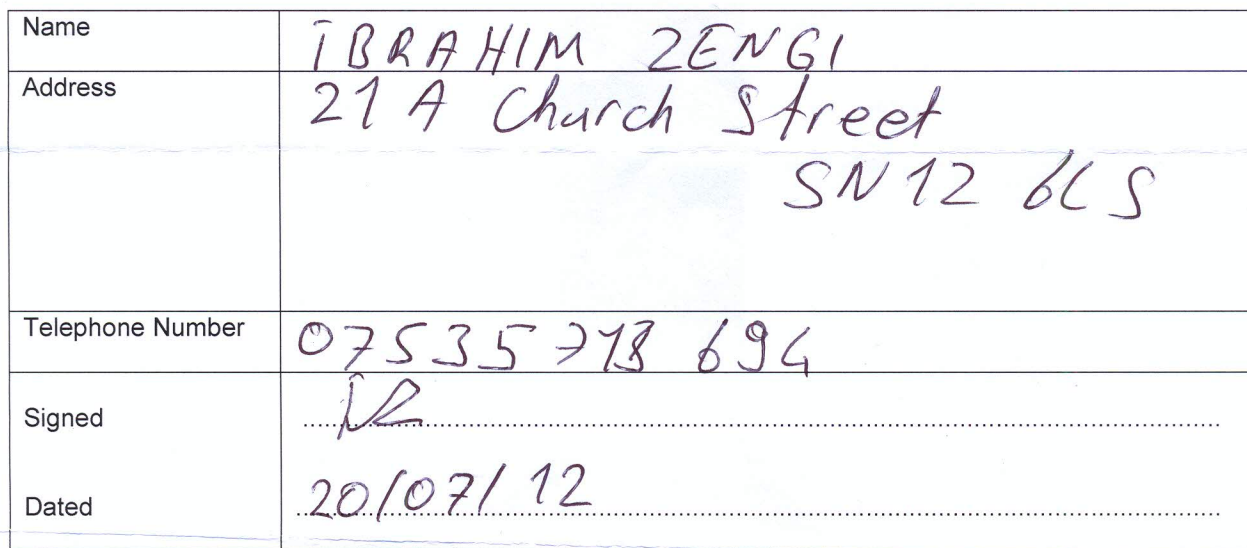 Name İBRAHIM ZENGI
Address 21 A Church Street
SN12 6LS
Telephone Number 07535 718 694
Signed
Dated 20/07/12